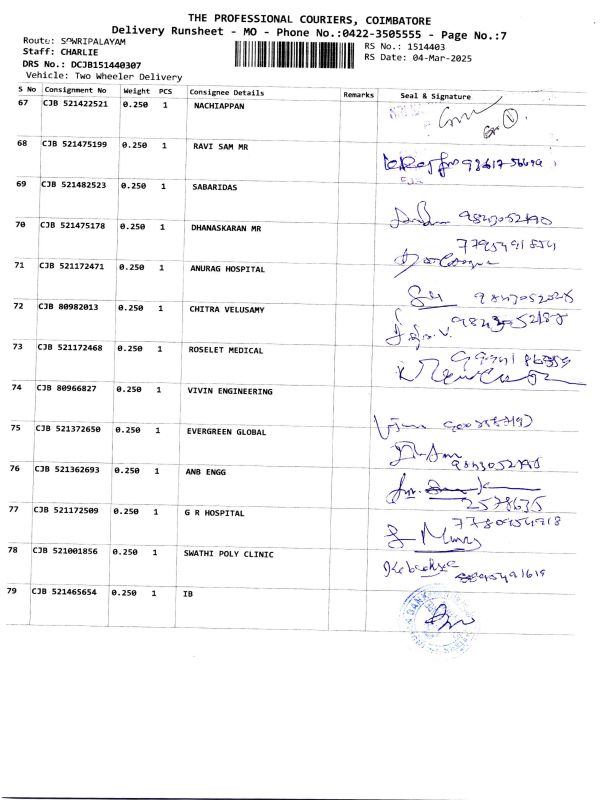 THE PROFESSIONAL COURIERS, COIMBATORE
Delivery Runsheet - MO - Phone No.:0422-3505555 - Page No.:7
Route: SOWRIPALAYAM
RS No.: 1514403
Staff: CHARLIE
RS Date: 04-Mar-2025
DRS No.: DCJB151440307
Vehicle: Two Wheeler Delivery
S No Consignment No Weight PCS Consignee Details Remarks Seal & Signature
67 CJB 521422521 0.250 1 NACHIAPPAN
68 CJB 521475199 0.250 1 RAVI SAM MR
69 CJB 521482523 0.250 1 SABARIDAS
9843052190
70 CJB 521475178 0.250 1 DHANASKARAN MR
71 CJB 521172471 0.250 1 ANURAG HOSPITAL
72 CJB 80982013 0.250 1 CHITRA VELUSAMY
73 CJB 521172468 0.250 1 ROSELET MEDICAL
74 CJB 80966827 0.250 1 VIVIN ENGINEERING
75 CJB 521372650 0.250 1 EVERGREEN GLOBAL
76 CJB 521362693 0.250 1 ANB ENGG
2578635
77 CJB 521172509 0.250 1 G R HOSPITAL
78 CJB 521001856 0.250 1 SWATHI POLY CLINIC
79 CJB 521465654 0.250 1 IB